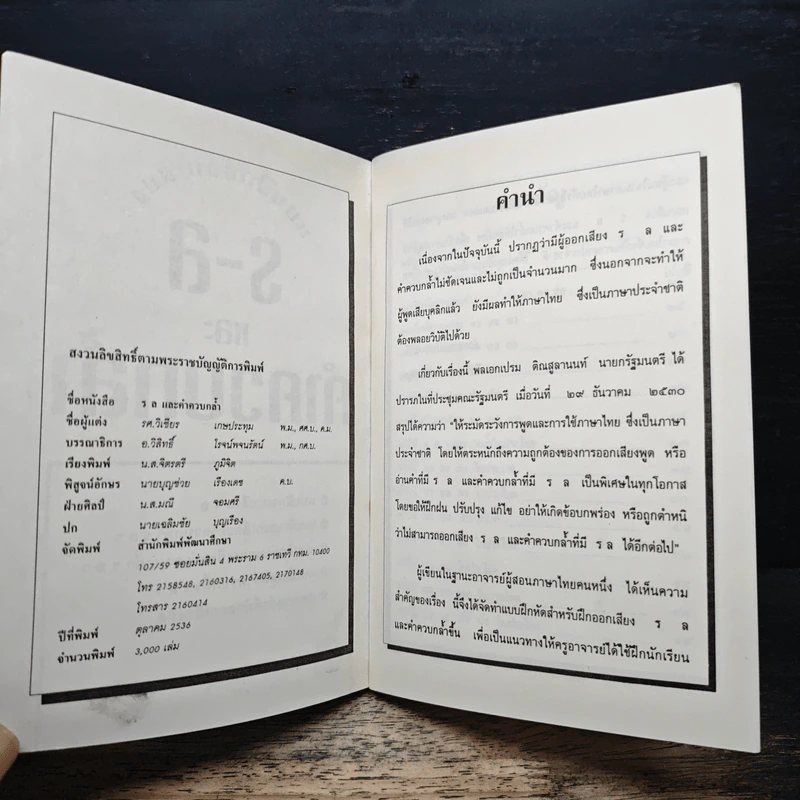 สงวนลิขสิทธิ์ตามพระราชบัญญัติการพิมพ์
ชื่อหนังสือ ร ล และคำควบกล้ำ
ชื่อผู้แต่ง รศ.วิเชียร เกษประทุม พ.ม., ศศ.บ., ค.ม.
บรรณาธิการ อ.วิสิทธิ์ โรจน์พจนรัตน์ พ.ม., กศ.บ.
เรียงพิมพ์ น.ส.จิตรตรี ภูมิจิต
พิสูจน์อักษร นายบุญช่วย เรืองเดช ค.บ.
ฝ่ายศิลป์ น.ส.มณี จอมศรี
ปก นายเฉลิมชัย บุญเรือง
จัดพิมพ์ สำนักพิมพ์พัฒนาศึกษา
107/59 ซอยมั่นสิน 4 พระราม 6 ราชเทวี กทม. 10400
โทร 2158548, 2160316, 2167405, 2170148
โทรสาร 2160414
ปีที่พิมพ์ ตุลาคม 2536
จำนวนพิมพ์ 3,000 เล่ม
คำนำ
เนื่องจากในปัจจุบันนี้ ปรากฏว่ามีผู้ออกเสียง ร ล และ
คำควบกล้ำไม่ชัดเจนและไม่ถูกเป็นจำนวนมาก ซึ่งนอกจากจะทำให้
ผู้พูดเสียบุคลิกแล้ว ยังมีผลทำให้ภาษาไทย ซึ่งเป็นภาษาประจำชาติ
ต้องพลอยวิบัติไปด้วย
เกี่ยวกับเรื่องนี้ พลเอกเปรม ติณสูลานนท์ นายกรัฐมนตรี ได้
ปรารภในที่ประชุมคณะรัฐมนตรี เมื่อวันที่ ๒๙ ธันวาคม ๒๕๓๐
สรุปได้ความว่า "ให้ระมัดระวังการพูดและการใช้ภาษาไทย ซึ่งเป็นภาษา
ประจำชาติ โดยให้ตระหนักถึงความถูกต้องของการออกเสียงพูด หรือ
อ่านคำที่มี ร ล และคำควบกล้ำที่มี ร ล เป็นพิเศษในทุกโอกาส
โดยขอให้ฝึกฝน ปรับปรุง แก้ไข อย่าให้เกิดข้อบกพร่อง หรือถูกตำหนิ
ว่าไม่สามารถออกเสียง ร ล และคำควบกล้ำที่มี ร ล ได้อีกต่อไป"
ผู้เขียนในฐานะอาจารย์ผู้สอนภาษาไทยคนหนึ่ง ได้เห็นความ
สำคัญของเรื่อง นี้จึงได้จัดทำแบบฝึกหัดสำหรับฝึกออกเสียง ร ล
และคำควบกล้ำขึ้น เพื่อเป็นแนวทางให้ครูอาจารย์ได้ใช้ฝึกนักเรียน